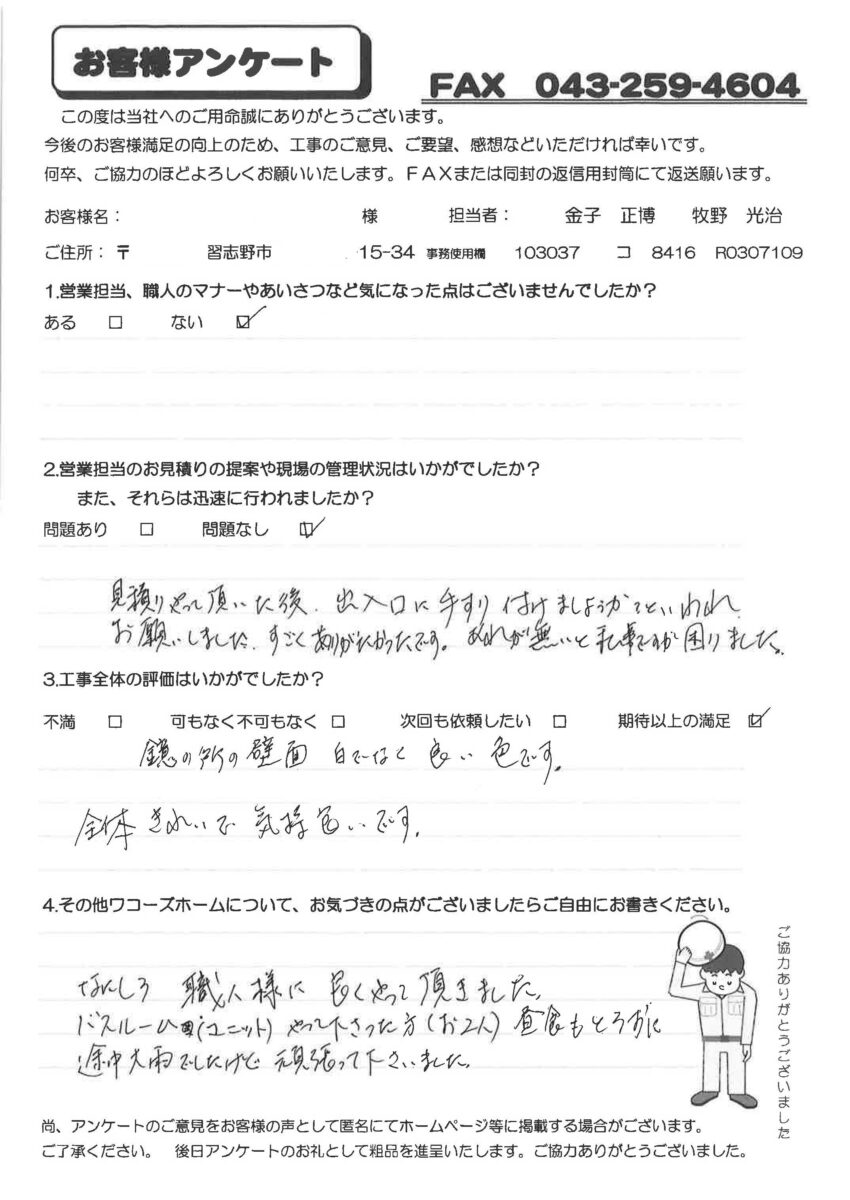 お客様アンケート
FAX 043-259-4604
この度は当社へのご用命誠にありがとうございます。
今後のお客様満足の向上のため、工事のご意見、ご要望、感想などいただければ幸いです。
何卒、ご協力のほどよろしくお願いいたします。FAXまたは同封の返信用封筒にて返送願います。
お客様名： 様 担当者： 金子 正博 牧野 光治
ご住所：〒 習志野市 15-34 事務使用欄 103037 コ 8416 R0307109
1.営業担当、職人のマナーやあいさつなど気になった点はございませんでしたか？
ある □ ない ☑
2.営業担当のお見積りの提案や現場の管理状況はいかがでしたか？
また、それらは迅速に行われましたか？
問題あり □ 問題なし ☑
見積りやって頂いた後、出入口に手すり付けましょうかといわれ
お願いしました、すごくありがたかったです。あれが無いと 困りました。
3.工事全体の評価はいかがでしたか？
不満 □ 可もなく不可もなく □ 次回も依頼したい □ 期待以上の満足 ☑
鏡の所の壁面 白でなく 良い 色です。
全体 きれいで 気持 いです。
4.その他ワコーズホームについて、お気づきの点がございましたらご自由にお書きください。
なにしろ 職人様に 良くやって頂きました。
バスルーム(ユニット) やって下さった方(お2人) 昼食もとらずに
途中大雨でしたけど 頑張って下さいました。
ご協力ありがとうございました
尚、アンケートのご意見をお客様の声として匿名にてホームページ等に掲載する場合がございます。
ご了承ください。 後日アンケートのお礼として粗品を進呈いたします。ご協力ありがとうございました。